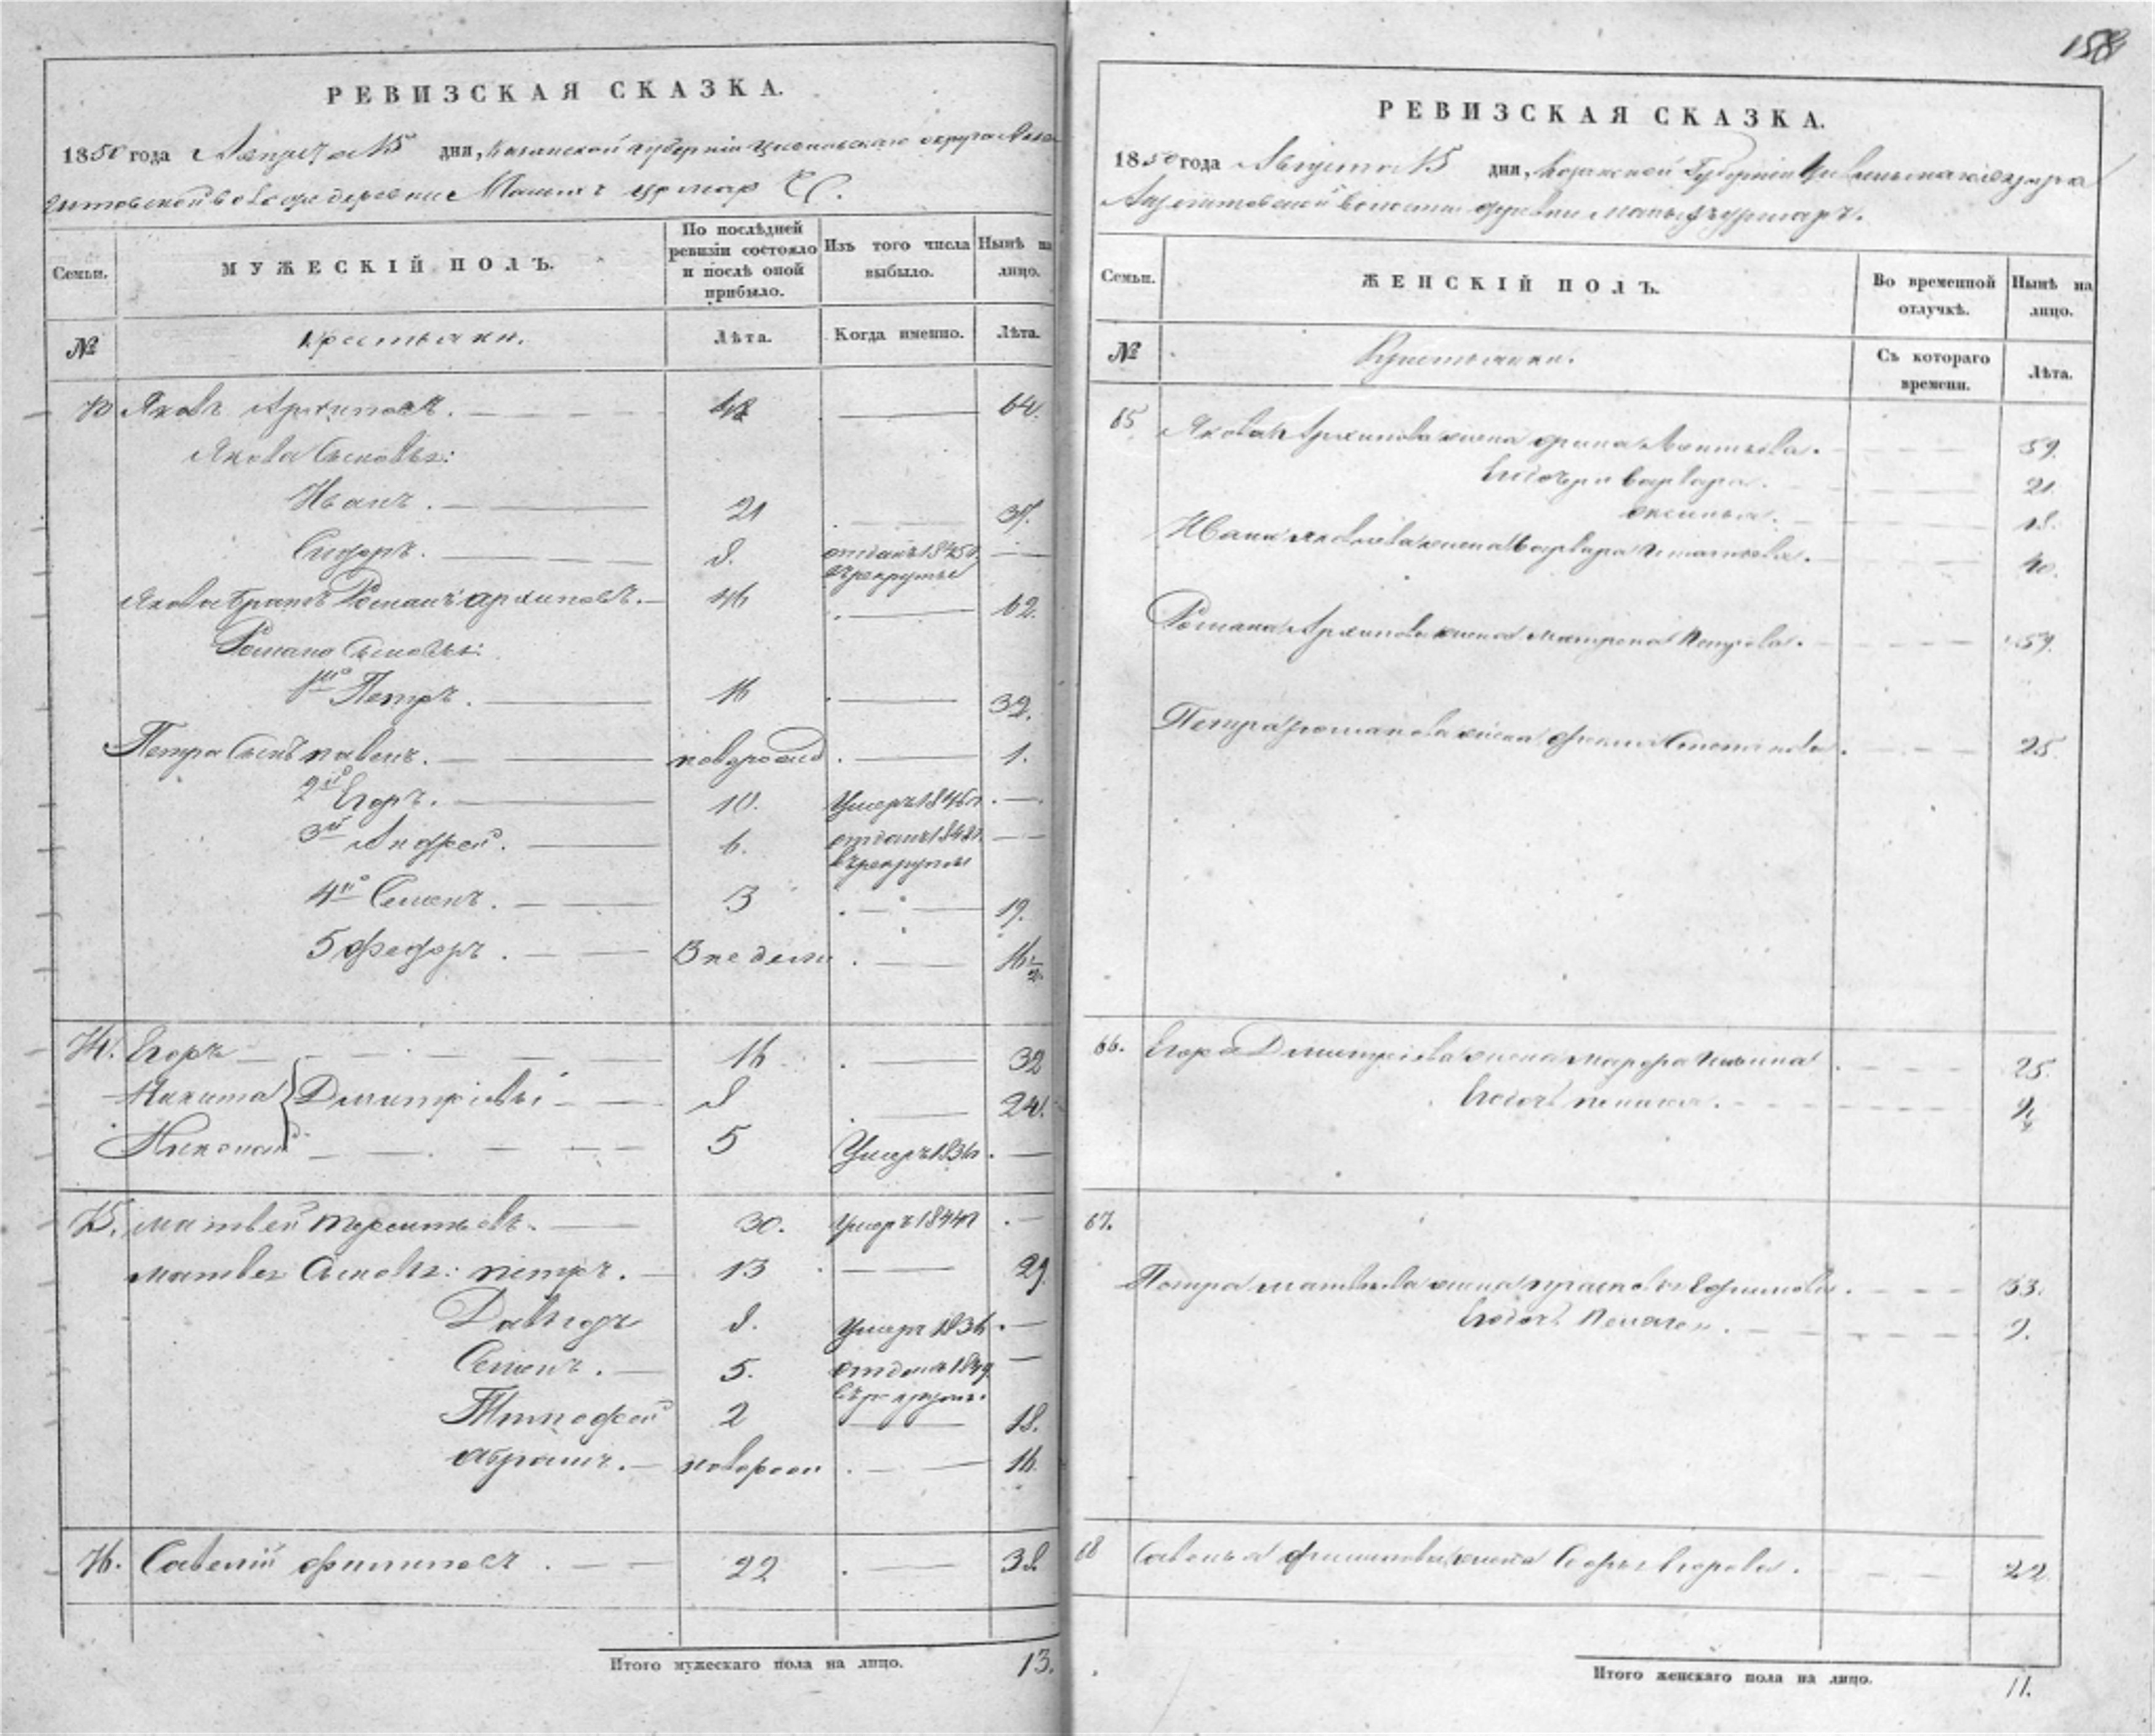 158
РЕВИЗСКАЯ СКАЗКА.
1850 года Августа 15 дня, Казанской Губерніи Цивильскаго округа
волости деревни Малыхъ
Семьи.
МУЖЕСКІЙ ПОЛЪ.
По послѣдней ревизіи состояло и послѣ оной прибыло.
Изъ того числа выбыло.
Нынѣ на лицо.
№
Крестьяне.
Лѣта.
Когда именно.
Лѣта.
Яковъ Архиповъ. 48 64.
Якова Сыновья:
Иванъ. 21 37.
Сидоръ. 8. отданъ 1845г. въ рекруты
Якова братъ Романъ архиповъ. 46 62.
Романа Сыновья:
1й Петръ. 16 32.
Петра Сынъ павелъ. новорожд. 1.
2й Егоръ. 10. Умеръ 1846г.
3й Андрей. 6. отданъ в рекруты
4й Семенъ. 3 19.
5 Федоръ. 3 недели 16
74. Егоръ 16 32
Никита Дмитріевы 8 24.
Николай 5 Умеръ 1836г.
75. матвей терентьевъ. 30. умеръ 1844г
матвея Сыновья: петръ. 13 29
Давыдъ 8. умеръ 1836
Семенъ. 5. отданъ 1849 въ рекруты.
Тимофей 2 18.
абрамъ. новорож 16
76. Савелій филиповъ. 22 38.
Итого мужескаго пола на лицо. 13.
РЕВИЗСКАЯ СКАЗКА.
1850 года Августа 15 дня, Казанской Губерніи Цивильскаго округа
волости деревни Малыхъ
Семьи.
ЖЕНСКІЙ ПОЛЪ.
Во временной отлучкѣ.
Нынѣ на лицо.
№
Крестьянки.
Съ котораго времени.
Лѣта.
65 Якова Архипова жена Леонтьева. 59.
Его дочери варвара. 21.
аксинья. 18.
Ивана яковлева жена варвара Игнатьева. 40.
Романа Архипова жена матрена Петрова. 59.
Петра романова жена Степанова. 25
66. Егора Дмитріева жена Ильина 25.
Его дочь
67.
Петра матвеева жена прасковья Ефимова. 33.
Его дочь 9.
68 Савелья филипова жена Софья Егорова. 22
Итого женскаго пола на лицо. 11.